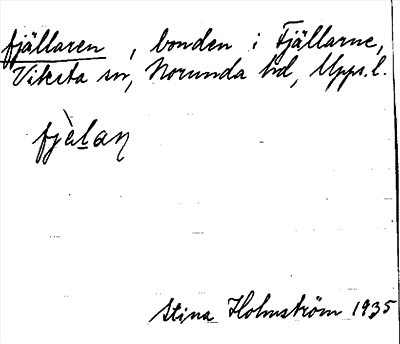 fjällaren, bonden i Fjällarne,
Viksta sn, Norunda hd, Upps. l.
fjèlaɳ
Stina Holmström 1935